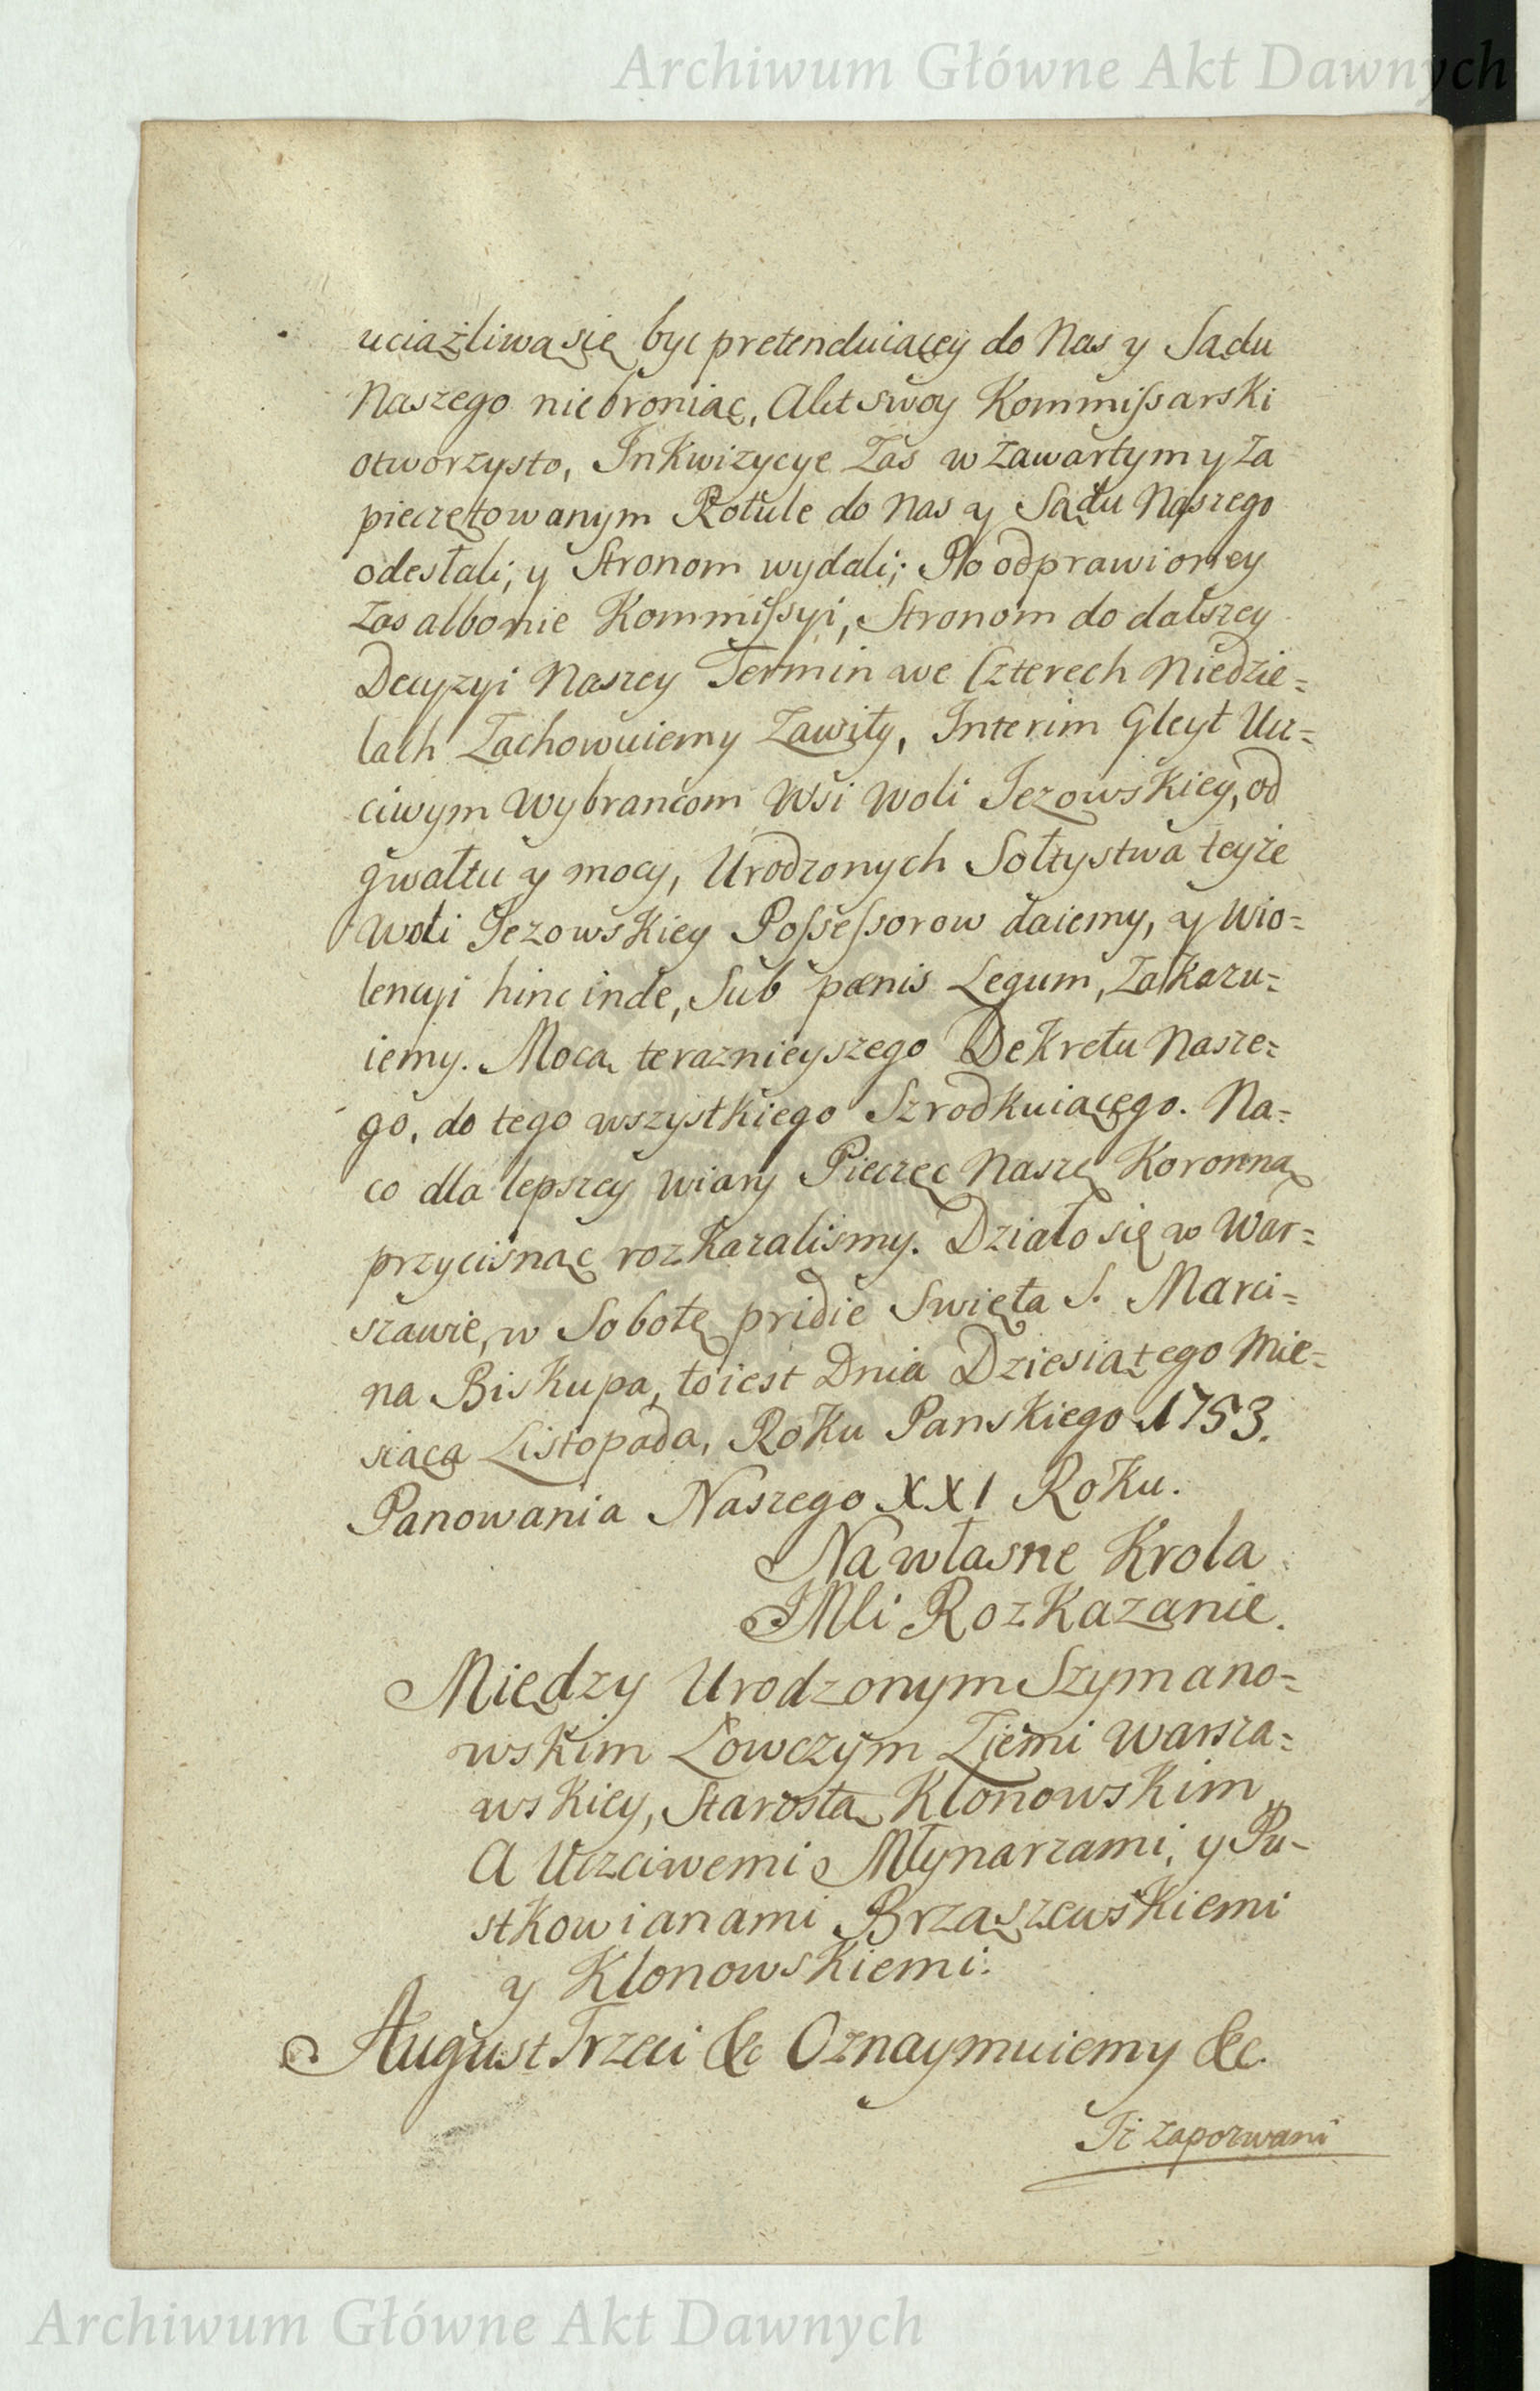 Archiwum Główne Akt Dawnych
uciążliwą się byc pretenduiącey do Nas y Sądu
Naszego niebroniąc, Akt swoy Kommissarski
otworzysto, Inkwizycye Zas w Zawartym y Za
pieczętowanym Rotule do Nas y Sądu Naszego
odesłali, y Stronom wydali; Po odprawioney
Zas albonie Kommissyi, Stronom do dalszey
Decyzyi Naszey Termin we Czterech Niedzie=
lach Zachowuiemy Zawity, Interim Gleyt Ucz=
ciwym Wybrancom Wsi Woli Jezowskiey, od
gwałtu y mocy, Urodzonych Sołtystwa teyże
Woli Jezowskiey Possessorow daiemy, y Wio=
lencyi hinc inde, Sub pœnis Legum, Zakazu=
iemy. Mocą teraznieyszego Dekretu Nasze=
go, do tego wszystkiego Szrodkuiącego. Na=
co dla lepszey Wiary Pieczęc Naszę Koronną
przycisnąc rozkazalismy. Działo się w War=
szawie, w Sobotę pridie Swięta S. Marci=
na Biskupa, toiest Dnia Dziesiątego Mie=
siąca Listopada, Roku Panskiego 1753.
Panowania Naszego XXI Roku.
Na własne Krola
JMci Rozkazanie.
Między Urodzonym Szymano=
wskim Łowczym Ziemi Warsza=
wskiey, Starostą Klonowskim
A Uczciwemi Młynarzami, y Pu=
stkowianami Brzaszewskiemi
y Klonowskiemi.
August Trzeci &c Oznaymuiemy &c.
Iż zapozwani
Archiwum Główne Akt Dawnych